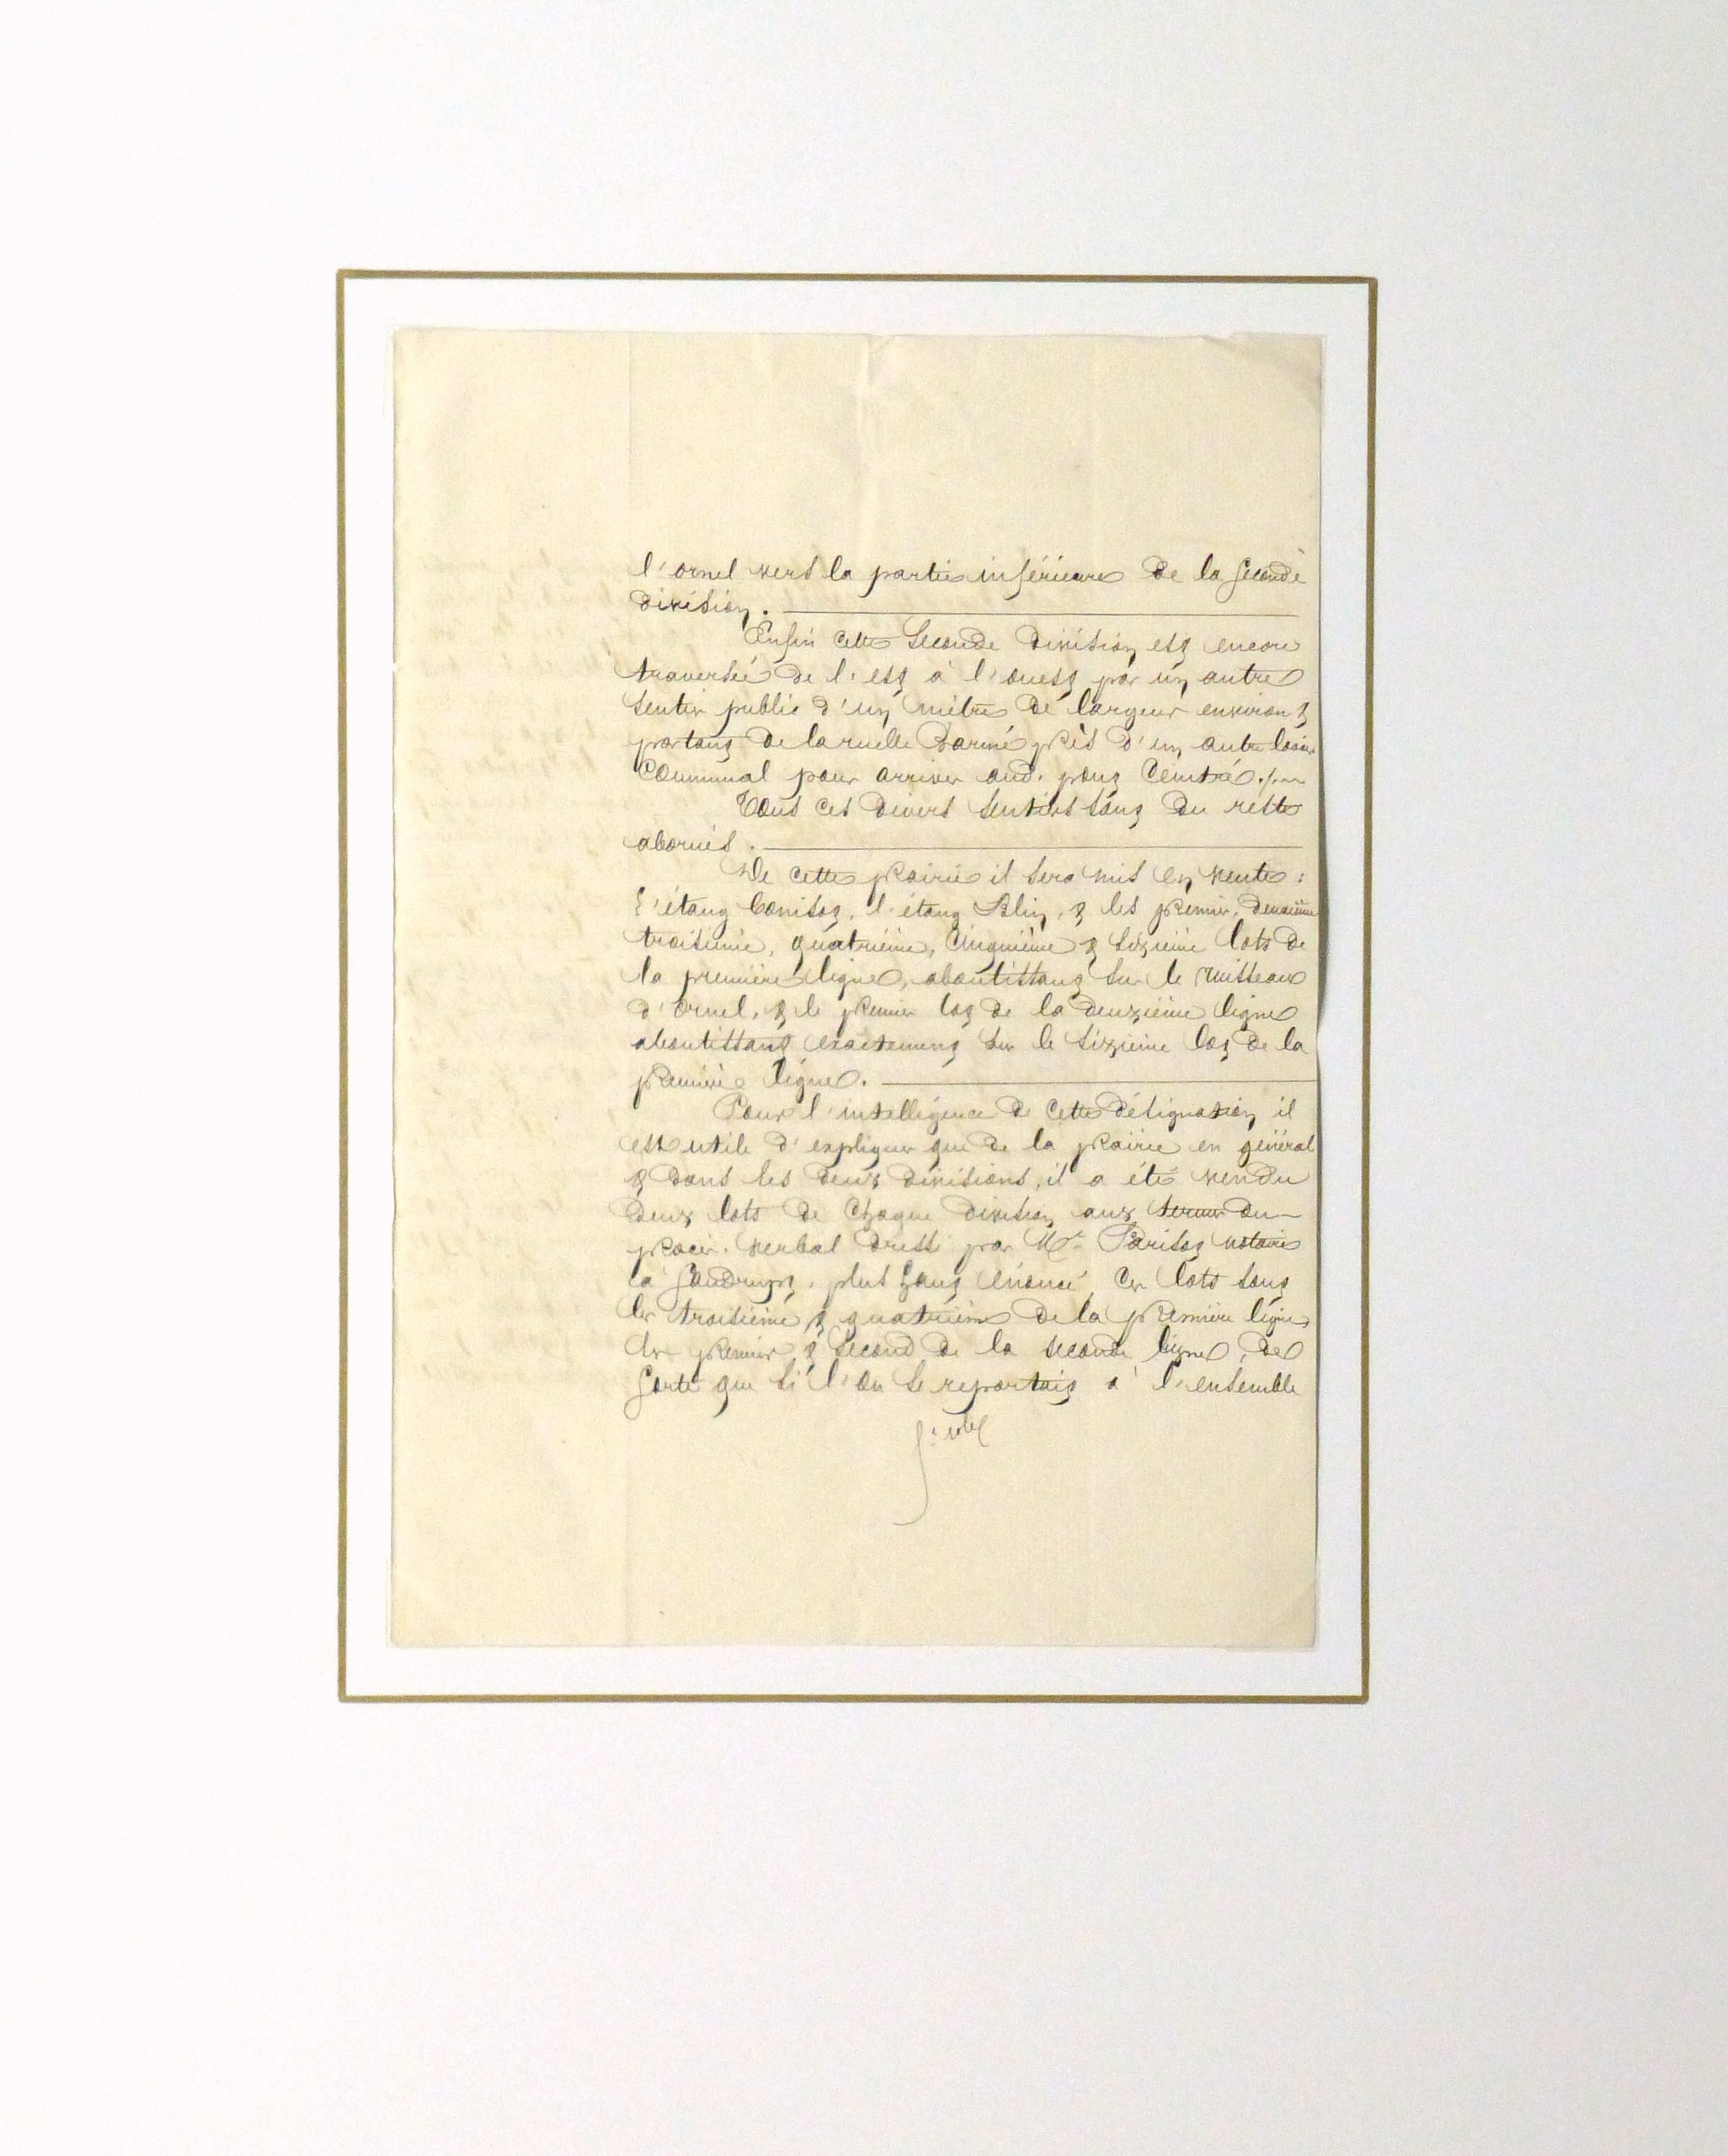 l'ornel vers la partie inférieure de la seconde
division.
Enfin cette seconde division est encore
traversée de l'est à l'ouest par un autre
sentier public d'un mètre de largeur environ &
partant de la ruelle près d'un autre
communal pour arriver aud. pont Ceintré./.
Tous ces divers sentiers sont du reste
abornés.
De cette prairie il sera mis en vente :
l'étang l'étang Blin, & les premier, deuxième
troisième, quatrième, cinquième & sixième lots de
la première ligne, aboutissant sur le ruisseau
d'Ornel, & le premier lot de la deuxième ligne
aboutissant exactement sur le sixième lot de la
première ligne.
Pour l'intelligence de cette désignation il
est utile d'expliquer que de la prairie en général
& dans les deux divisions, il a été vendu
deux lots de chaque division aux termes du
procès-verbal dressé par Me Parisot notaire
à plus haut énoncé, ces lots sont
les troisième & quatrième de la première ligne
les premier & second de la seconde ligne, de
sorte que si l'on se reportait à l'ensemble